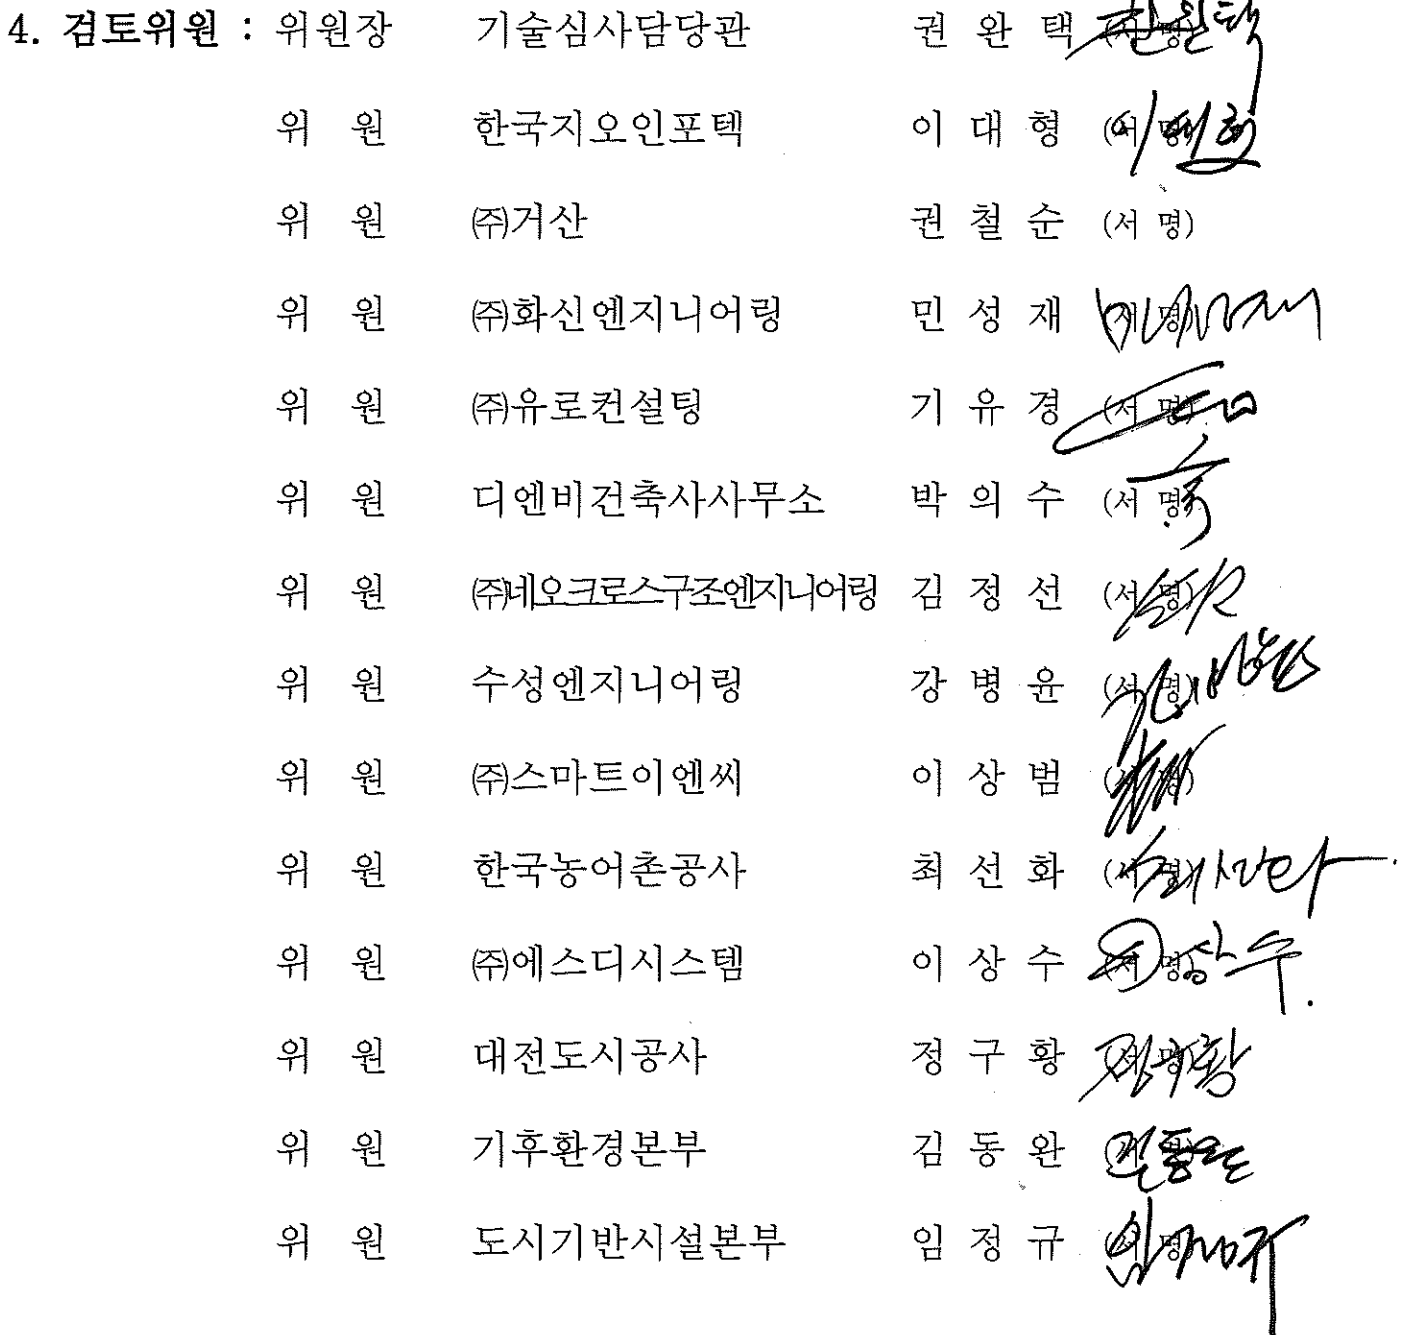 4. 검토위원 : 위원장 기술심사담당관 권 완 택 (서 명)
위 원 한국지오인포텍 이 대 형 (서 명)
위 원 ㈜거산 권 철 순 (서 명)
위 원 ㈜화신엔지니어링 민 성 재 (서 명)
위 원 ㈜유로컨설팅 기 유 경 (서 명)
위 원 디엔비건축사사무소 박 의 수 (서 명)
위 원 ㈜네오크로스구조엔지니어링 김 정 선 (서 명)
위 원 수성엔지니어링 강 병 윤 (서 명)
위 원 ㈜스마트이엔씨 이 상 범 (서 명)
위 원 한국농어촌공사 최 선 화 (서 명)
위 원 ㈜에스디시스템 이 상 수 (서 명)
위 원 대전도시공사 정 구 황 (서 명)
위 원 기후환경본부 김 동 완 (서 명)
위 원 도시기반시설본부 임 정 규 (서 명)